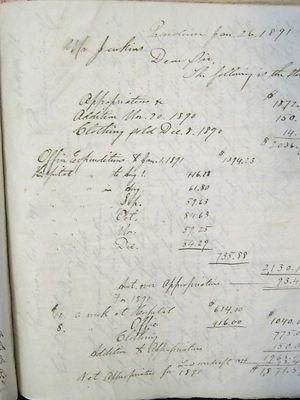 Jan. 26. 1891
Mr Jenkins
Dear Sir,
The following is the
Appropriation $1872.
Addition Nov. 20. 1890 150.
Clothing sold Dec. 8. 1890 14.
$2036.
Office Expenditures to Jan. 1. 1891 $1394.23
Hospital to Aug 1. 416.18
" in Aug. 61.80
" Sep. 59.63
Oct. 84.63
Nov. 59.25
Dec. 54.29
735.88
2130.
over Appropriation 93.4
For 1891
$12. a week at Hospital $624.00
8. " Office 416.00 $1040.0
Clothing 775.0
Addition to Appropriation 150.0
Net Appropriation for 1890 $1871.5